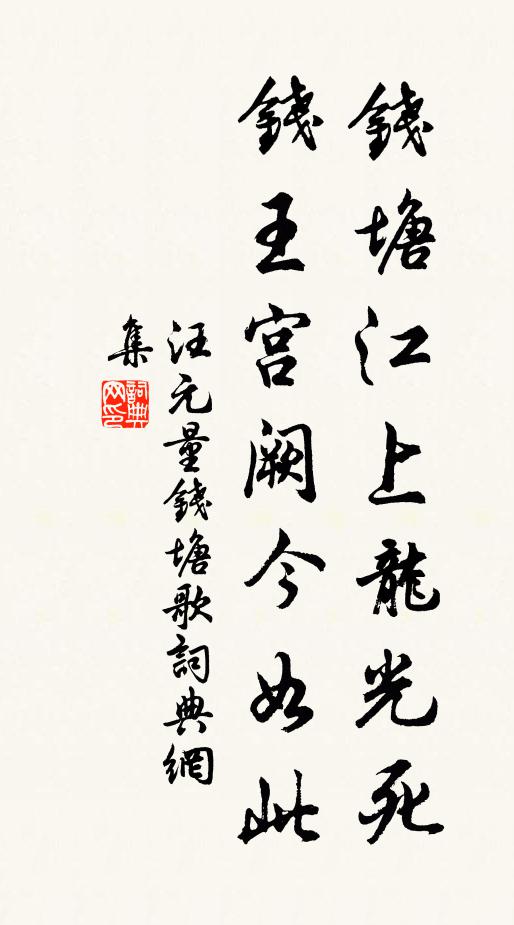 錢塘江上龍光死
錢王宮闕今如此
汪元量錢塘歌詞典網
集
詞典
网印